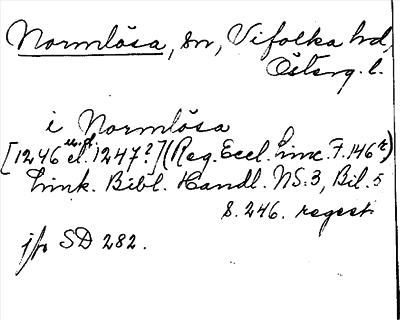 Normlösa, sn, Vifolka hd,
Österg. l.
i Normlösa
[1246 el. 1247?] (Reg. Eccl. Linc. F. 146r)
Link. Bibl. Handl. NS:3, Bil. 5
S. 246. regest
jfr SD 282.